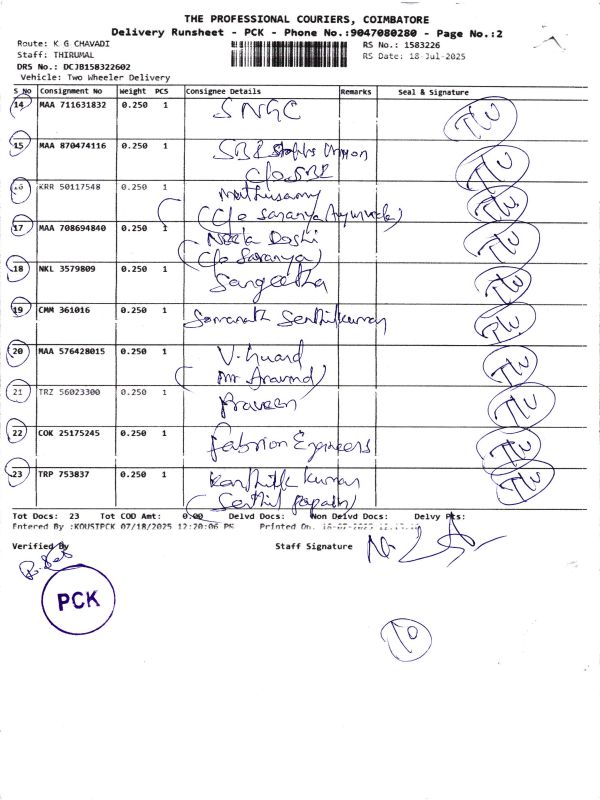 THE PROFESSIONAL COURIERS, COIMBATORE
Delivery Runsheet - PCK - Phone No.:9047080280 - Page No.:2
Route: K G CHAVADI RS No.: 1583226
Staff: THIRUMAL RS Date: 18-Jul-2025
DRS No.: DCJB158322602
Vehicle: Two Wheeler Delivery
S No Consignment No Weight PCS Consignee Details Remarks Seal & Signature
14 MAA 711631832 0.250 1 SNGC
15 MAA 870474116 0.250 1 SBI Staffs Union
C/o SBI
16 KRR 50117548 0.250 1 Muthusamy
(C/o Saranya Ayurveda)
17 MAA 708694840 0.250 1 Neela Doshi
(C/o Saranya)
18 NKL 3579809 0.250 1 Sangeetha
19 CMM 361016 0.250 1 Somanath Senthilkumar
20 MAA 576428015 0.250 1 V-Guard
(Mr Aravind)
21 TRZ 56023300 0.250 1 Praveen
22 COK 25175245 0.250 1 Fabrion Engineers
23 TRP 753837 0.250 1 Karthik Kumar
Tot Docs: 23 Tot COD Amt: 0.00 Delvd Docs: Non Delvd Docs: Delvy Pts:
Entered By :KOUSTPCK 07/18/2025 12:20:06 PM Printed On.
Verified By Staff Signature
PCK